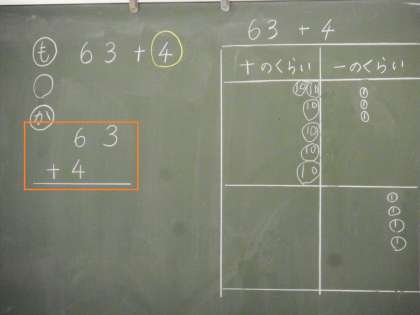 も 63+4
か
63
+4
63+4
十のくらい 一のくらい
10 10 1
10 1
10 1
10
10
1
1
1
1